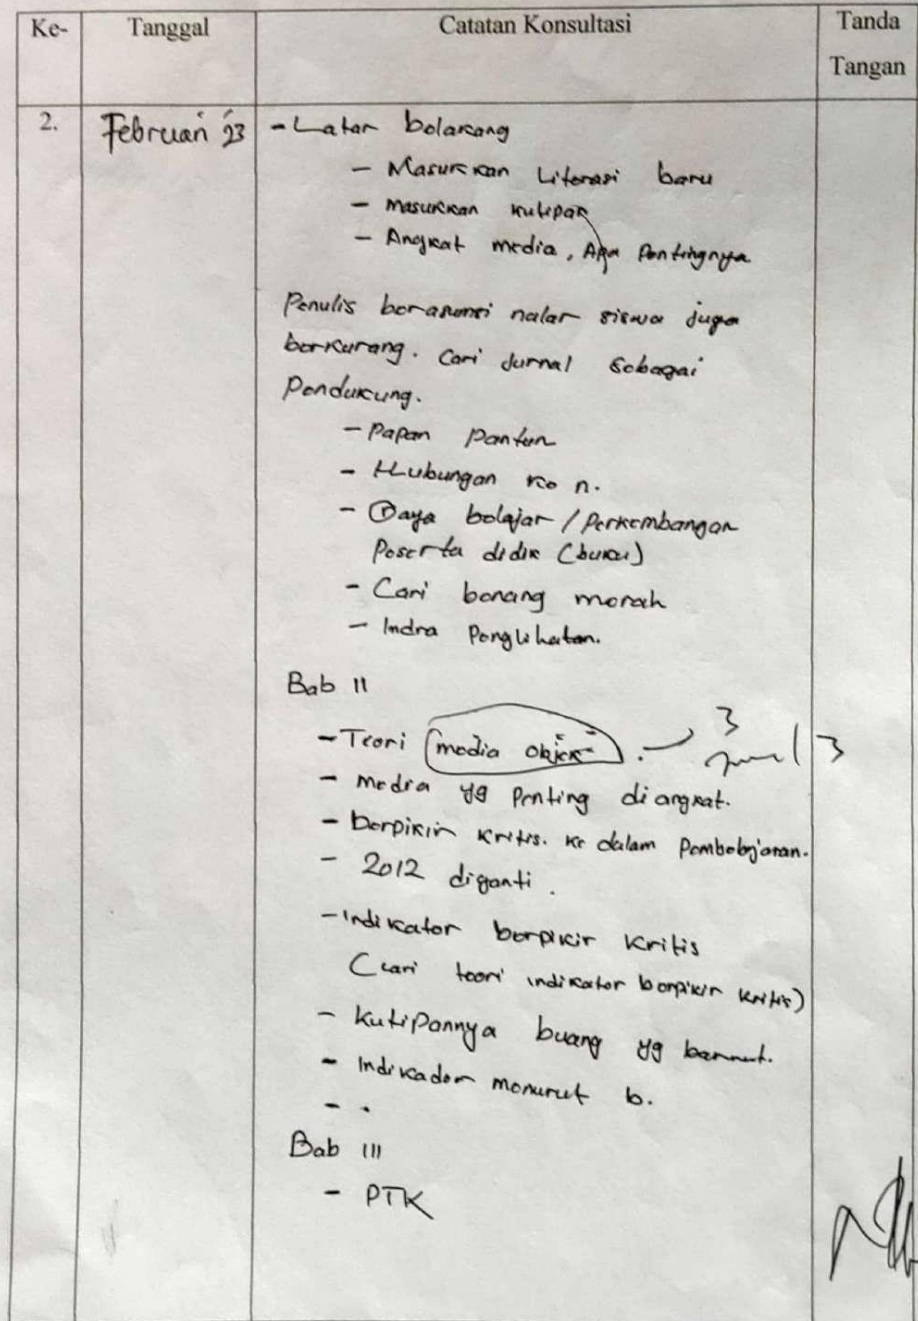 Ke-
Tanggal
Catatan Konsultasi
Tanda
Tangan
2.
Februari '23
- Latar bolakang
- Masukkan Literasi baru
- masukkan kutipan
- Angkat media, Apa Pentingnya
Penulis berasumsi nalar siswa juga
berkurang. Cari Jurnal Sebagai
Pendukung.
- Papan Pantun
- Hubungan ke n.
- Daya belajar / Perkembangan
Peserta didik (buku)
- Cari benang merah
- Indra Penglihatan.
Bab II
- Teori media objek. 3
3
- media yg penting di angkat.
- berpikir kritis. ke dalam Pembelajaran.
- 2012 diganti.
- Indikator berpikir kritis
(cari teori indikator berpikir kritis)
- Kutipannya buang yg
- Indikador menurut b.
- .
Bab III
- PTK